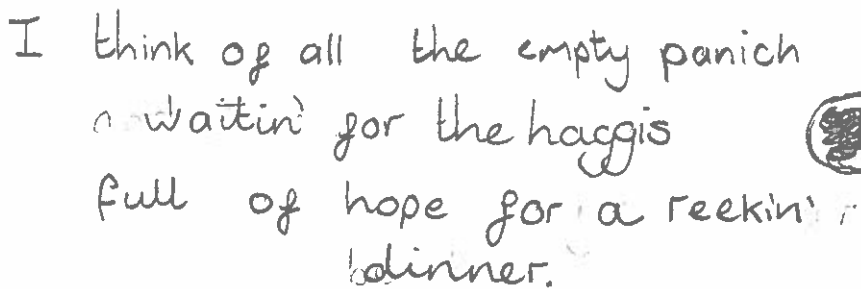 I think of all the empty panich
a waitin' for the haggis
full of hope for a reekin'
dinner.